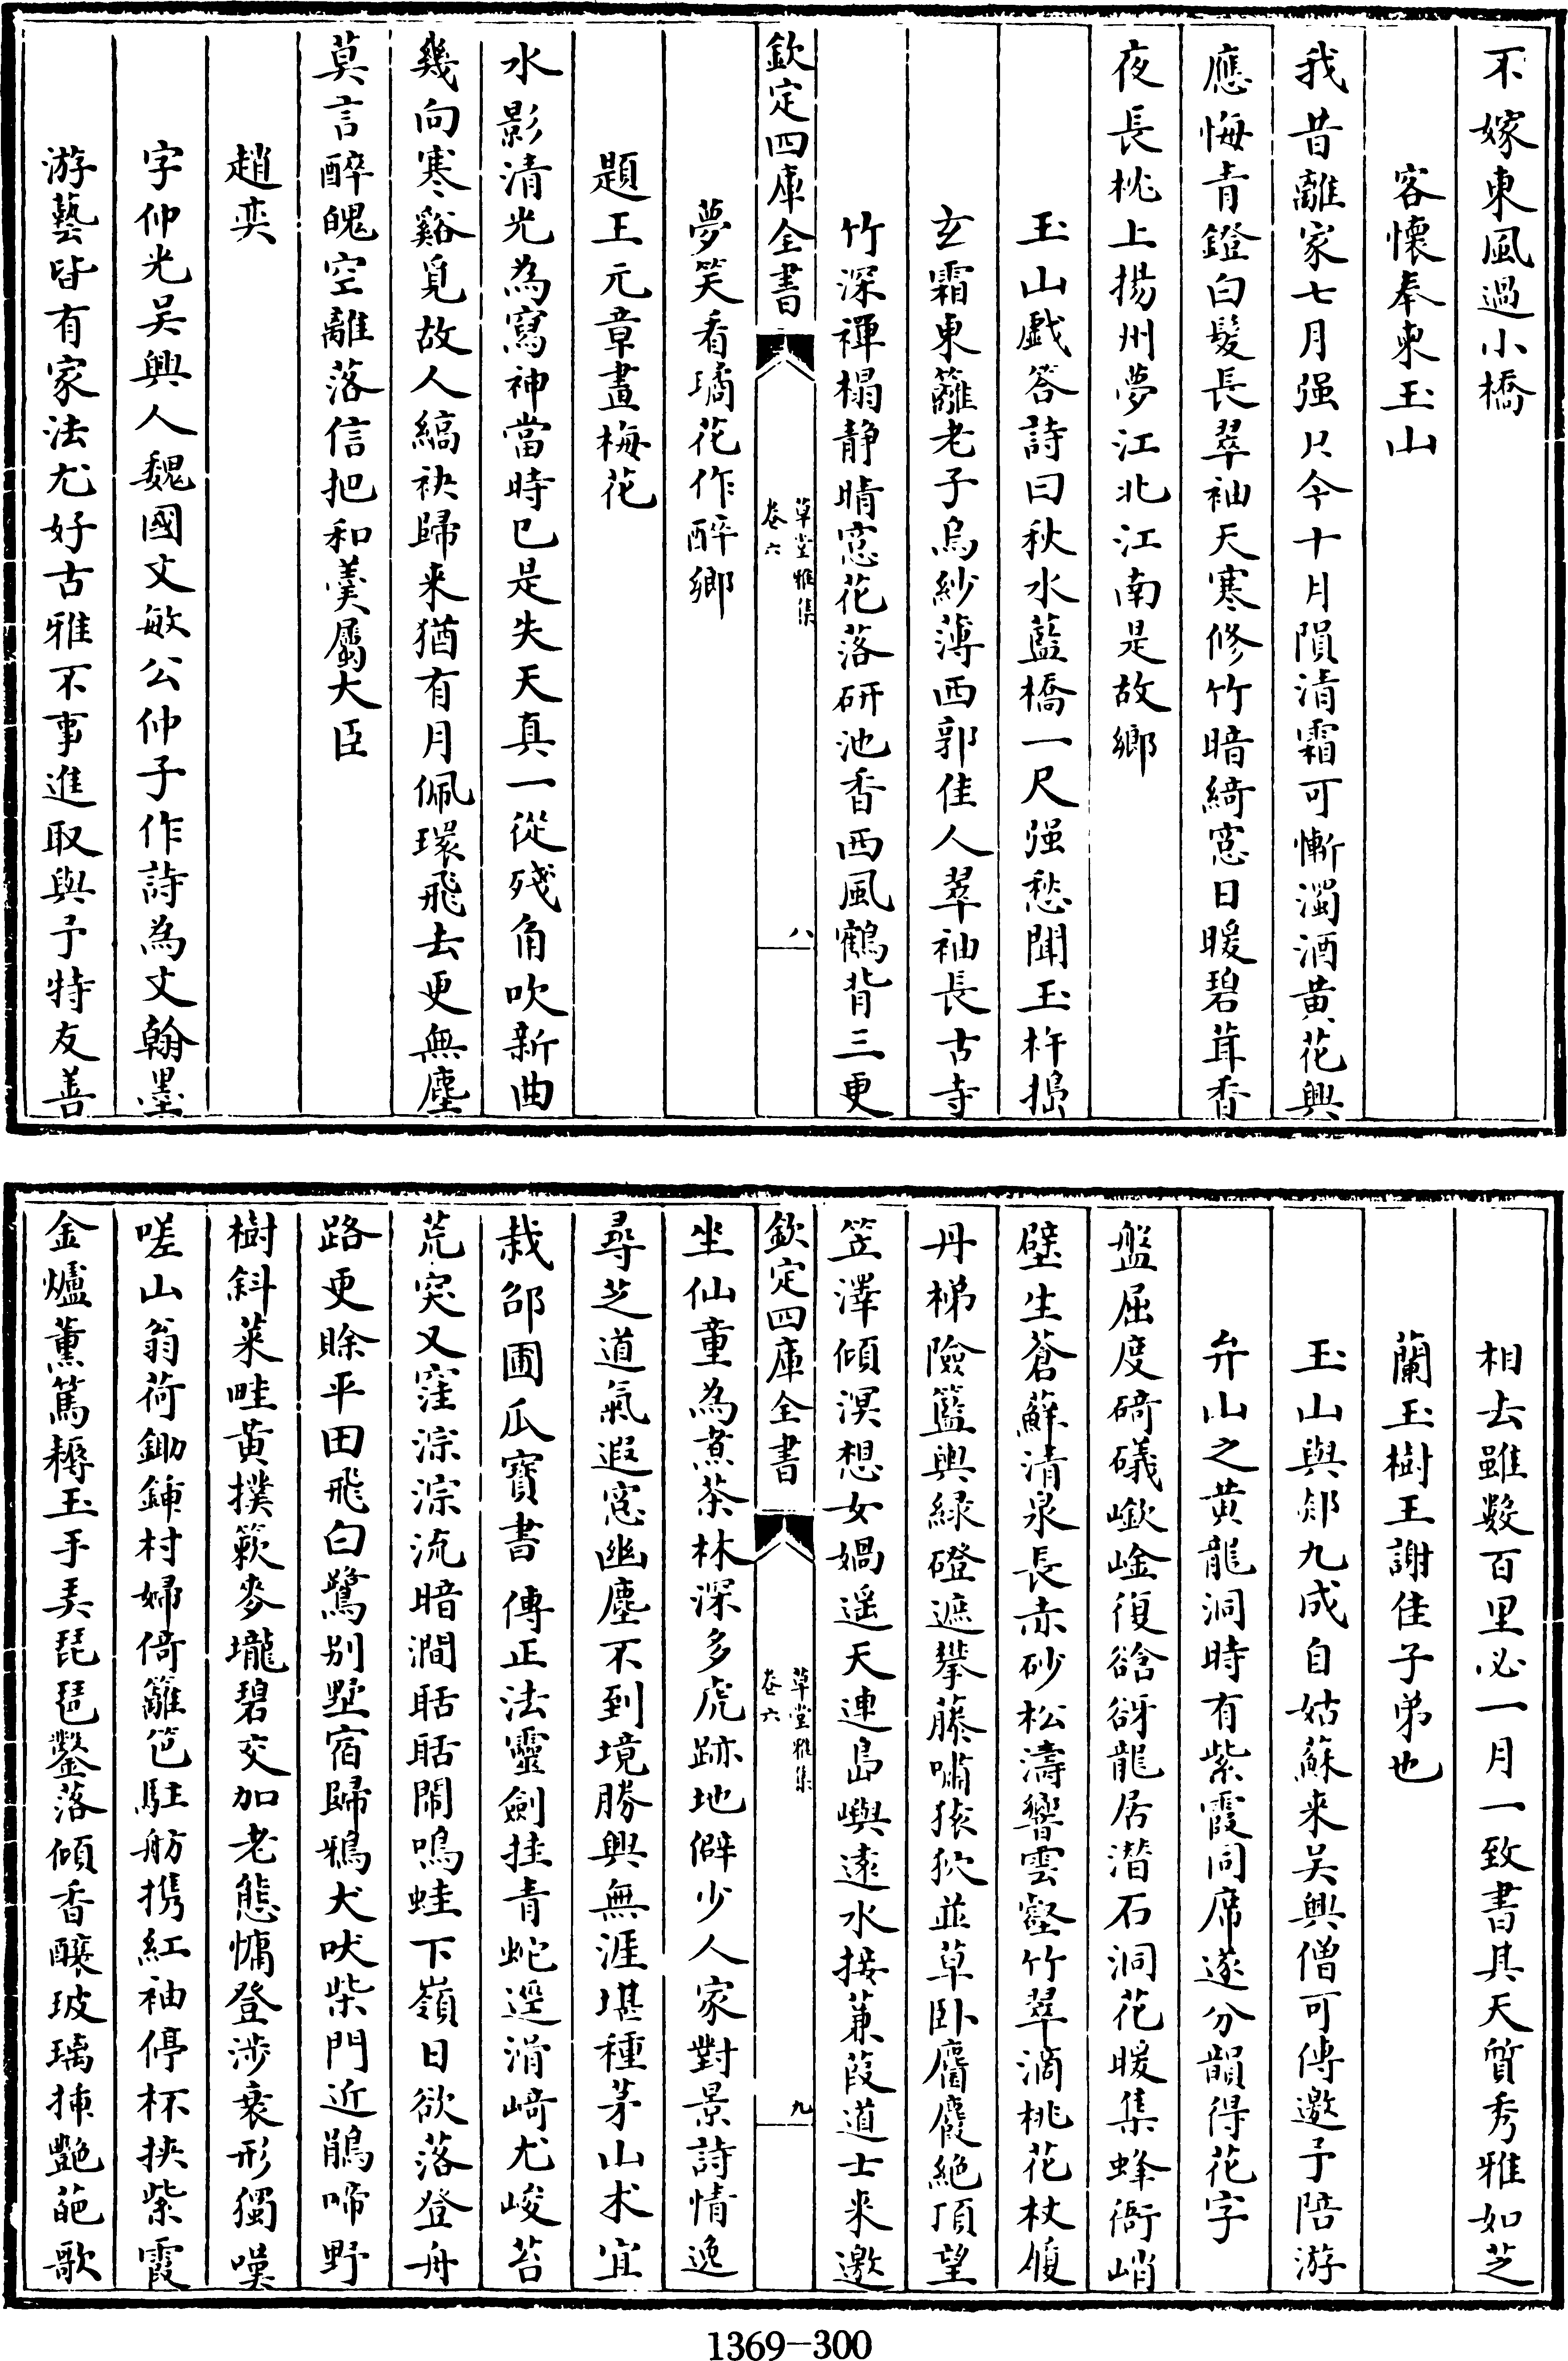 不嫁東風過小橋
客懷奉柬玉山
我昔離家七月强只今十月隕清霜可慚濁酒黄花興
應悔青鐙白髮長翠袖天寒修竹暗綺窓日暖碧茸香
夜長枕上揚州夢江北江南是故鄉
玉山戯答詩曰秋水藍橋一尺强愁聞玉杵搗
玄霜東籬老子烏紗薄西郭佳人翠袖長古寺
竹深禪榻靜晴窓花落研池香西風鶴背三更
欽定四庫全書
草堂雅集
卷六
八
夢笑看璚花作醉鄉
題王元章畫梅花
水影清光為寫神當時已是失天真一從殘角吹新曲
幾向寒谿覓故人縞袂歸来猶有月佩環飛去更無塵
莫言醉魄空離落信把和羮屬大臣
趙奕
字仲光吴興人魏國文敏公仲子作詩為文翰墨
游藝皆有家法尤好古雅不事進取與予特友善
相去雖數百里必一月一致書其天質秀雅如芝
蘭玉樹王謝佳子弟也
玉山與郯九成自姑蘇来吴興僧可傳邀予陪游
弁山之黄龍洞時有紫霞同席遂分韻得花字
盤屈度碕礒嶔崟復谽谺龍居潜石洞花暖集蜂衙峭
壁生蒼蘚清泉長赤砂松濤響雲壑竹翠滴桃花杖履
丹梯險籃輿緑磴遮攀藤嘯猿狖並草卧麕麚絶頂望
笠澤傾溟想女媧遥天連島嶼遠水接蒹葭道士来邀
欽定四庫全書
草堂雅集
卷六
九
坐仙童為煮茶林深多虎跡地僻少人家對景詩情逸
尋芝道氣遐窓幽塵不到境勝興無涯堪種茅山朮宜
栽邵圃瓜寶書傳正法靈劍挂青蛇逕滑崎尤峻苔
荒突又窪淙淙流暗澗聒聒閙鳴蛙下嶺日欲落登舟
路更賒平田飛白鷺别墅宿歸鴉犬吠柴門近鵑啼野
樹斜菜畦黄撲簌麥壠碧交加老態慵登涉衰形獨嘆
嗟山翁荷鋤鍤村婦倚籬笆駐舫携紅袖停杯挾紫霞
金爐薰篤耨玉手弄琵琶鑿落傾香醸玻璃揷艷葩歌
1369-300